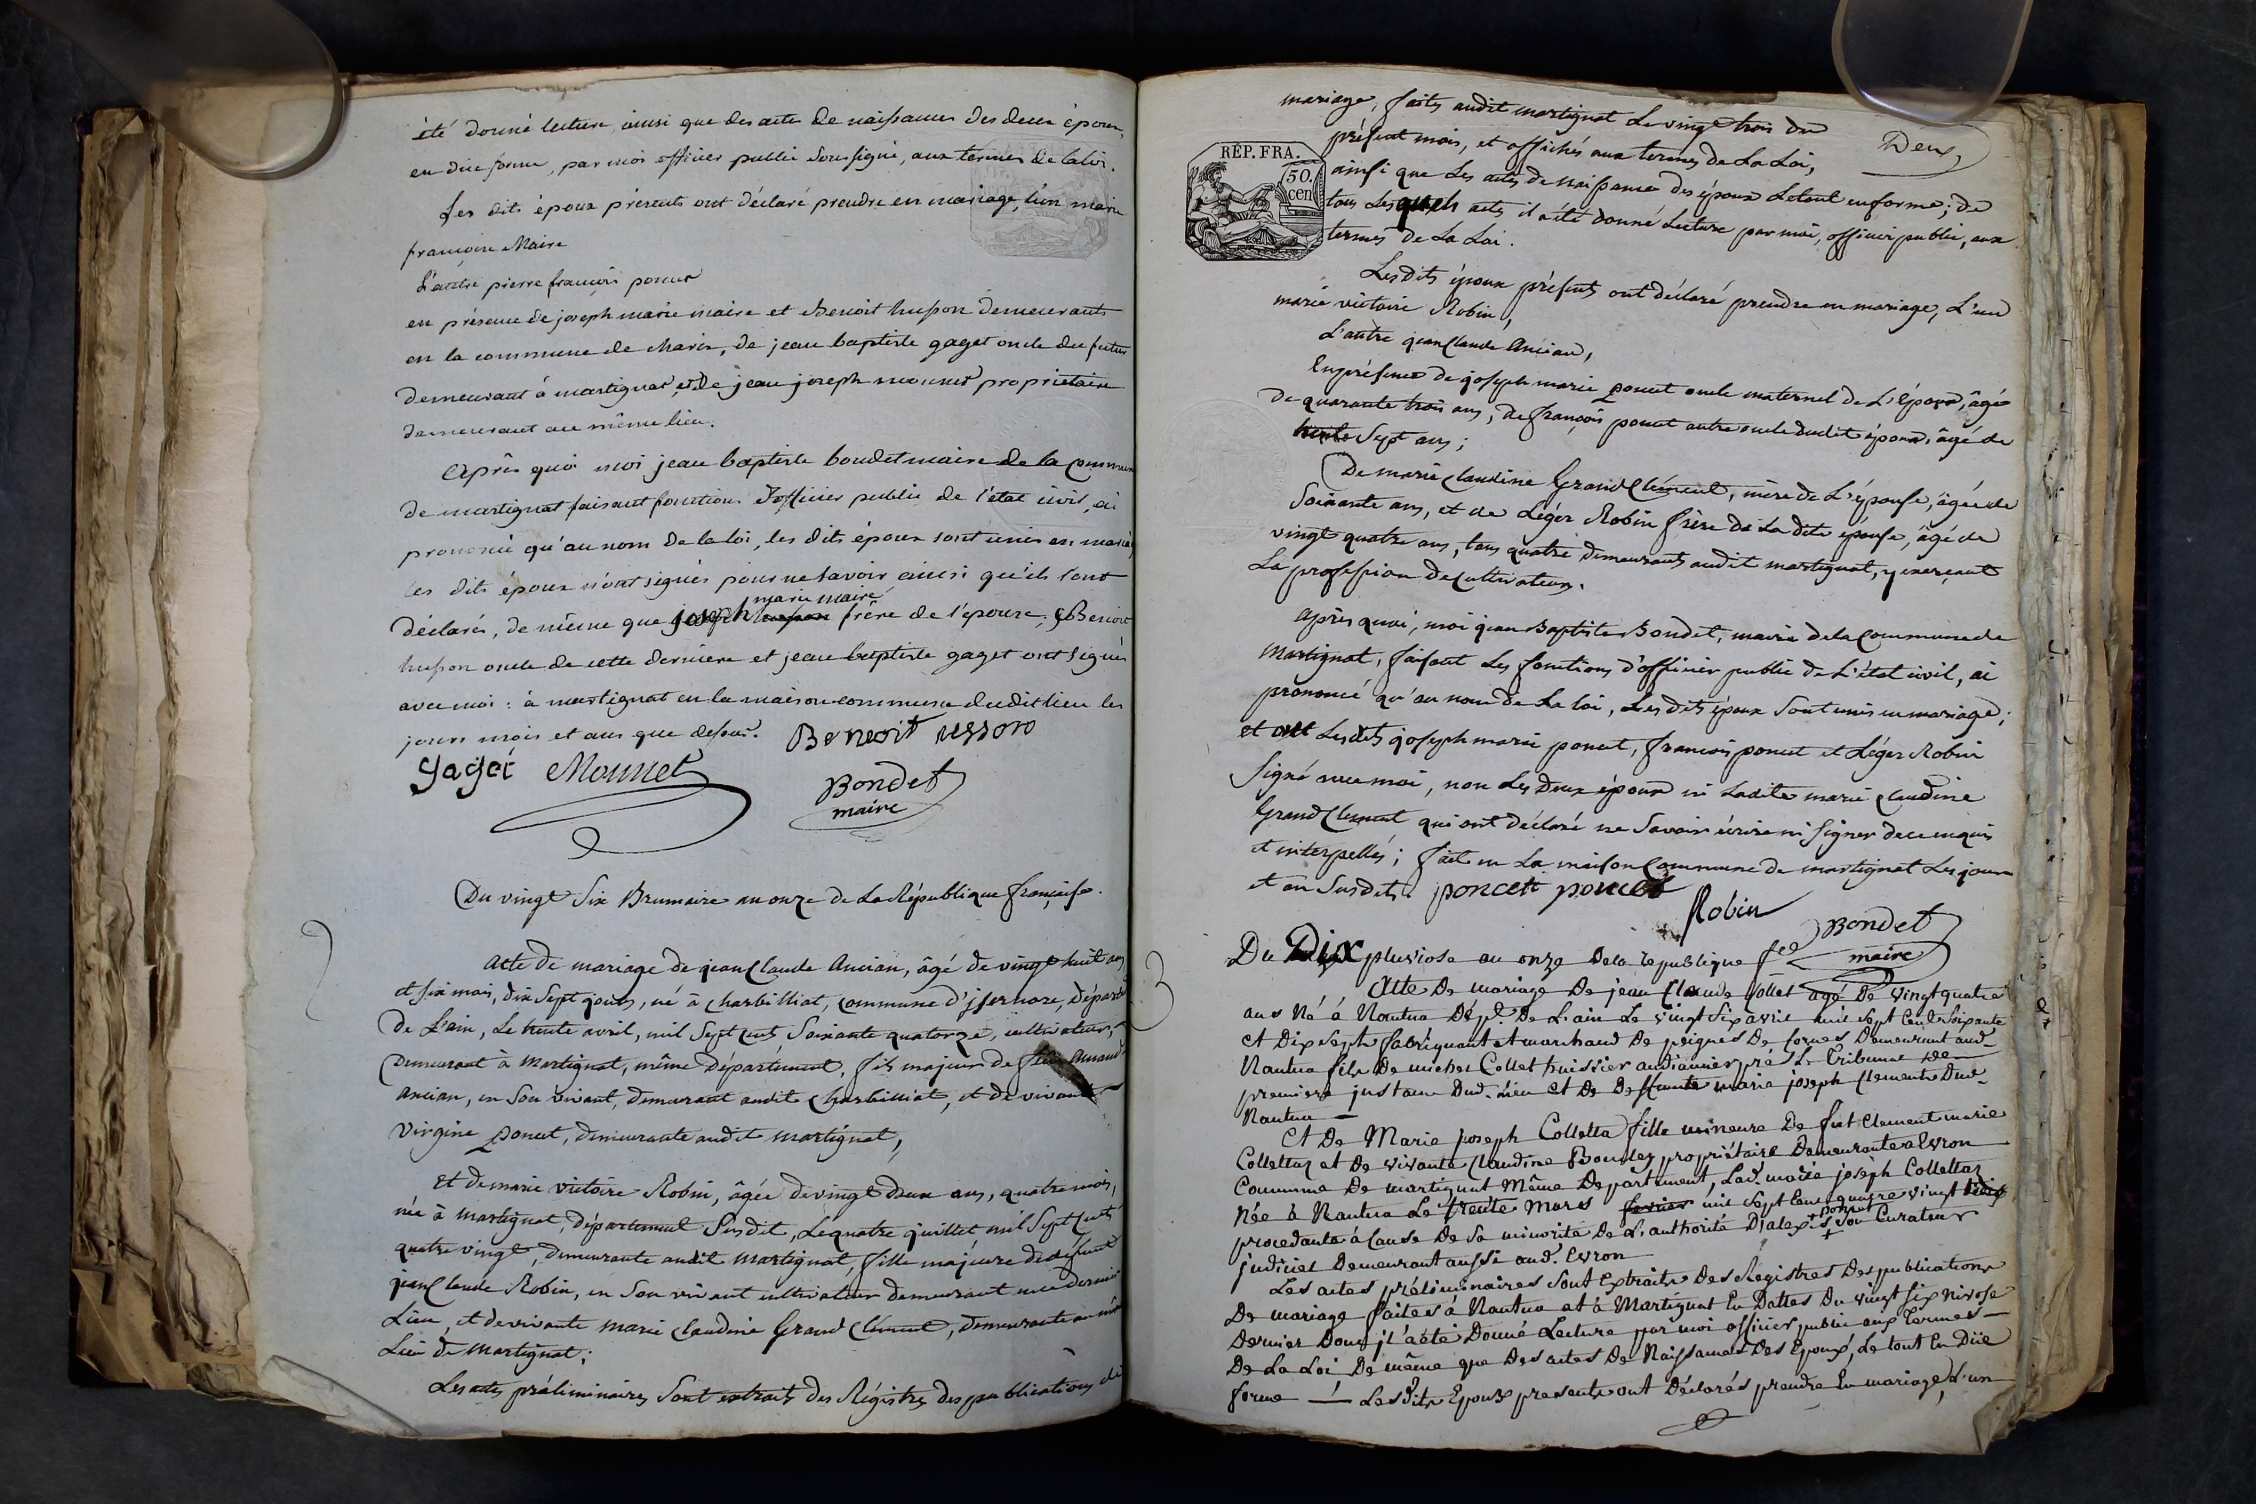 été donné lecture, ainsi que des acte de naissance des deux époux,
en due forme, par moi officier public soussigné, aux termes de la loi.
Les dits époux présents ont déclaré prendre en mariage, l'un marie
françoise Maire
L'autre pierre françois poncet
en présence de joseph marie maire et Benoit husson demeurants
en la commune de charix, de jean baptiste gaget oncle du futur
demeurant à martignat, et de jean joseph mounet propriétaire
demeurant au même lieu.
Après quoi moi jean baptiste bondet maire de la commune
de martignat faisant fonctions d'officier public de l'état civil, ai
prononcé qu'au nom de la loi, les dits époux sont unis en mariage,
les dits époux n'ont signés pour ne savoir ainsi qu'ils l'ont
marie maire
déclarés, de même que joseph husson frère de l'épouse; Benoit
husson oncle de cette dernière et jean baptiste gaget ont signés
avec moi : à martignat en la maison commune dudit lieu les
jours mois et ans que dessus. Benoit ussoro
gaget Mounet
Bondet
maire
Du vingt Six Brumaire an onze de La République française.
Acte de mariage de jean Claude Ancian, âgé de vingt huit ans
et six mois, dix sept jours, né à charbilliat, commune d'jsernore, départ.
De L'ain, Le trente avril, mil Sept cent Soixante quatorze, cultivateur,
Demeurant à Martignat, même Département, fils majeur de
Ancian, en Son vivant, demeurant audit Charbilliat, et de vivante
Virgine poncet, demeurante audit martignat,
Et de marie victoire Robin, âgée de vingt deux ans, quatre mois,
née à Martignat, département Susdit, Le quatre juillet mil Sept Cent
quatre vingt, demeurante audit Martignat, fille majeure de défunt
jean Claude Robin, en Son vivant cultivateur demeurant au dernier
Lieu, et de vivante marie Claudine Grand Clément, demeurante au même
Lieu de Martignat;
Les actes préliminaires Sont extraits des Régistres des publications de
mariage, faits audit martignat Le vingt trois du
Deux
présent mois, et affichés aux termes de La Loi,
REP. FRA.
50.
cen
ainsi que Les actes de naissance des époux Le tout en forme; de
tous Lesquels acts il a été donné Lecture par moi, officier public, aux
termes de La Loi.
Lesdits époux présents ont déclaré prendre en mariage, L'un
marie victoire Robin,
L'autre jean Claude Ancian,
En présence de joseph marie poncet oncle maternel de L'époux, âgé
de quarante trois ans, de françois poncet autre oncle dudit époux, âgé de
trente Sept ans;
De marie Claudine Grand Clément, mère de L'épouse, âgée de
Soixante ans, et de Léger Robin frère de La dite épouse, âgé de
vingt quatre ans, tous quatre demeurants audit martignat, y exerçant
La profession de Cultivateurs.
Après quoi, moi jean Baptiste Bondet, maire de la Commune de
Martignat, faisant Les fonctions d'officier public de L'état civil, ai
prononcé qu'au nom de La loi, Les dits époux Sont unis en mariage;
et ont Lesdits joseph marie poncet, françois poncet et Léger Robin
Signé avec moi, non Les Deux époux ni Ladite marie Claudine
Grand Clement qui ont déclaré ne Savoir écrire ni Signer de ce enquis
et interpellés; fait en La maison Commune de martignat Les jour
et an Susdits. poncet poncet
Robin
Bondet
maire
3
Du Dix pluviose an onze De la republique
Acte De mariage De jean Claude Collet agé De Vingt quatre
ans Né à Nantua Dép.t De L'ain Le vingt Six avril mil Sept Cent Soixante
et Dix Sept fabriquant et marchand De peignes De cornes Demeurant aud.
Nantua fils De michel Collet huissier audiancier près Le Tribunal De
premiere justance Dud. Lieu et De Deffunte marie joseph Clement Dud.
Nantua
Et De Marie joseph Colletta fille mineure De fut Clement marie
Collettaz et De vivante Claudine Bondet propriétaire Demeurante a Evron
Commune De martignat Même Département, Lad. marie joseph Collettaz
Née à Nantua Le trente Mars mil Sept Cent quatre vingt
procedante à Cause De Sa minorité De L'authorité D'alexis poncet Son Curateur
judiciel Demeurant aussi aud. Evron
Les actes préliminaires Sont Extraits Des Régistres Des publications
De mariage faites à Nantua et à Martignat En Dattes Du vingt Six Nivose
Dernier Dont jl a été Donné Lecture par moi officier public aux Termes
De La Loi De même que Des actes De Naissances Des Epoux, Le tout En Düe
forme — Les Dits Epoux presents ont Déclarés prendre En mariage, L'un